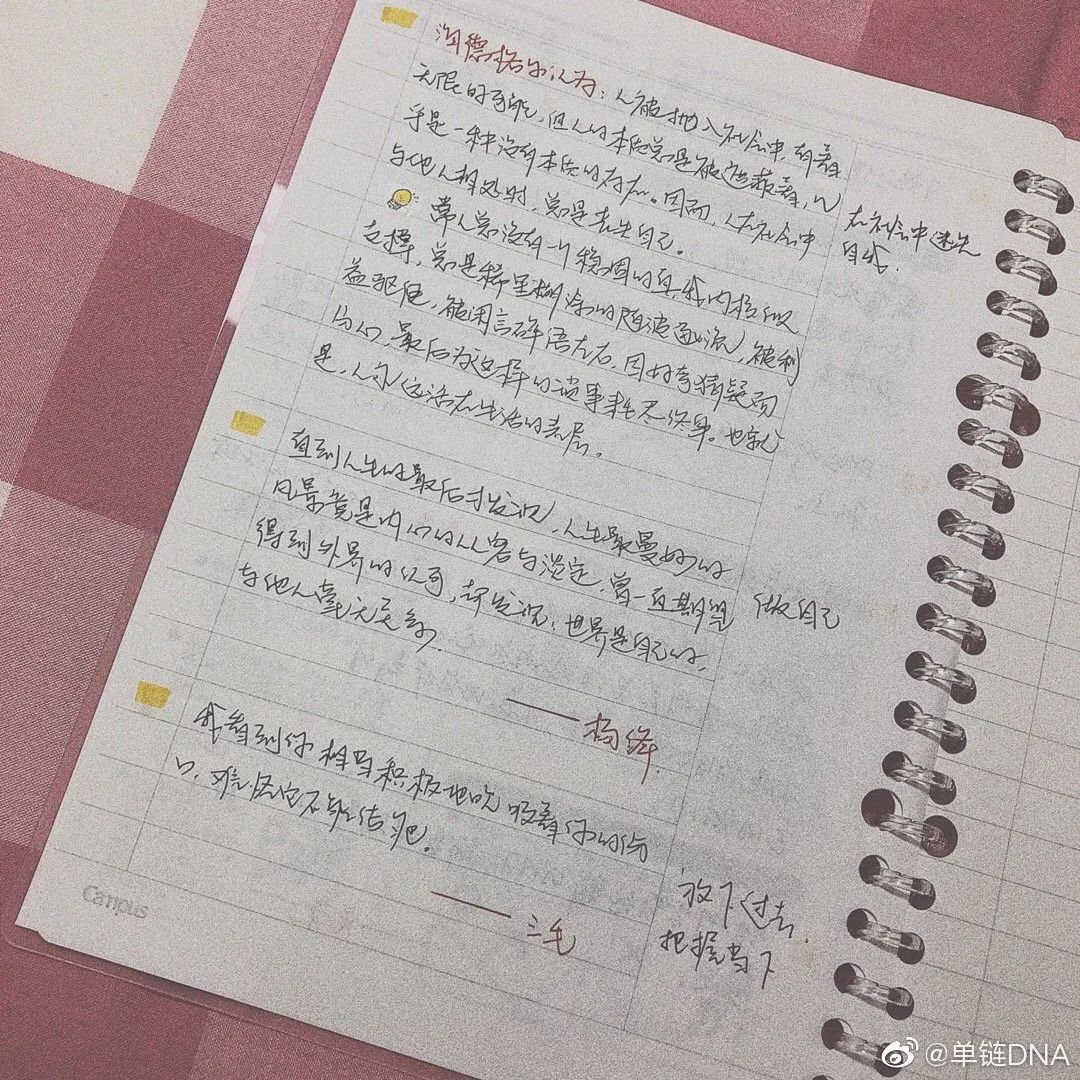 海德格尔认为：人被抛入社会中，有着
无限的可能，但人的本性总是被遮蔽着，似
乎是一种没有本性的存在。因而，人在社会中
与他人相处时，总是丢失自己。
在社会中迷失
自我.
常人总没有一个稳固的自我内核做
支撑，总是稀里糊涂的随波逐流，被利
益驱使，被闲言碎语左右，因好奇猜疑而
分心，最后为这样的琐事耗尽终身。也就
是，人永远活在生活的表层。
直到人生的最后才发现，人生最曼妙的
风景竟是内心的从容与淡定，曾一直期望
得到外界的认可，却发现：世界是自己的，
与他人毫无关系.
做自己
——杨绛.
我看到你相当积极地吮吸着你的伤
口，难怪它不能结疤。
——三毛
放下过去.
把握当下
Campus
@单链DNA